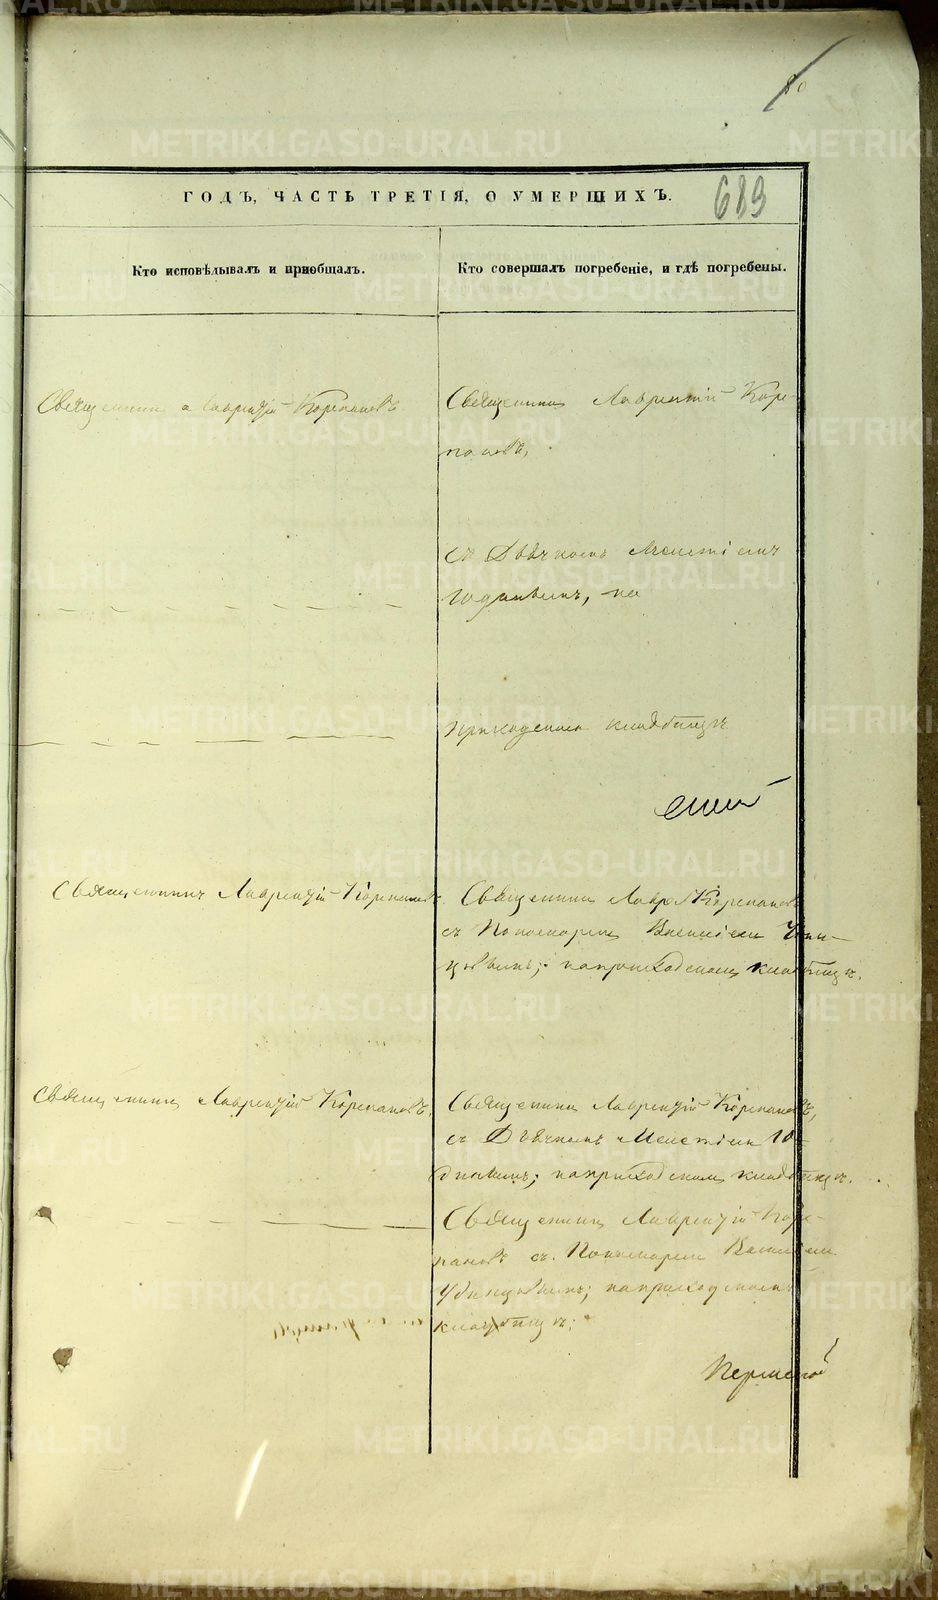 80
ГОДЪ, ЧАСТЬ ТРЕТІЯ, О УМЕРШИХЪ.
689
Кто исповѣдывалъ и пріобщалъ.
Кто совершалъ погребеніе, и гдѣ погребены.
Священникъ Лаврентій Корепановъ
Священникъ Лаврентій Коре-
пановъ,
съ Дьячкомъ Мелетіемъ
на
приходскомъ кладбищѣ
Священникъ Лаврентій Корепановъ
Священникъ Лавр. Корепановъ
съ Пономаремъ Василіемъ
на приходскомъ кладбищѣ.
Священникъ Лаврентій Корепановъ.
Священникъ Лаврентій Корепановъ,
съ Дьячкомъ Мелетіемъ
на приходскомъ кладбищѣ.
Священникъ Лаврентій Коре-
пановъ съ Пономаремъ Василіемъ
на приходскомъ
кладбищѣ;
Пермской
METRIKI.GASO-URAL.RU